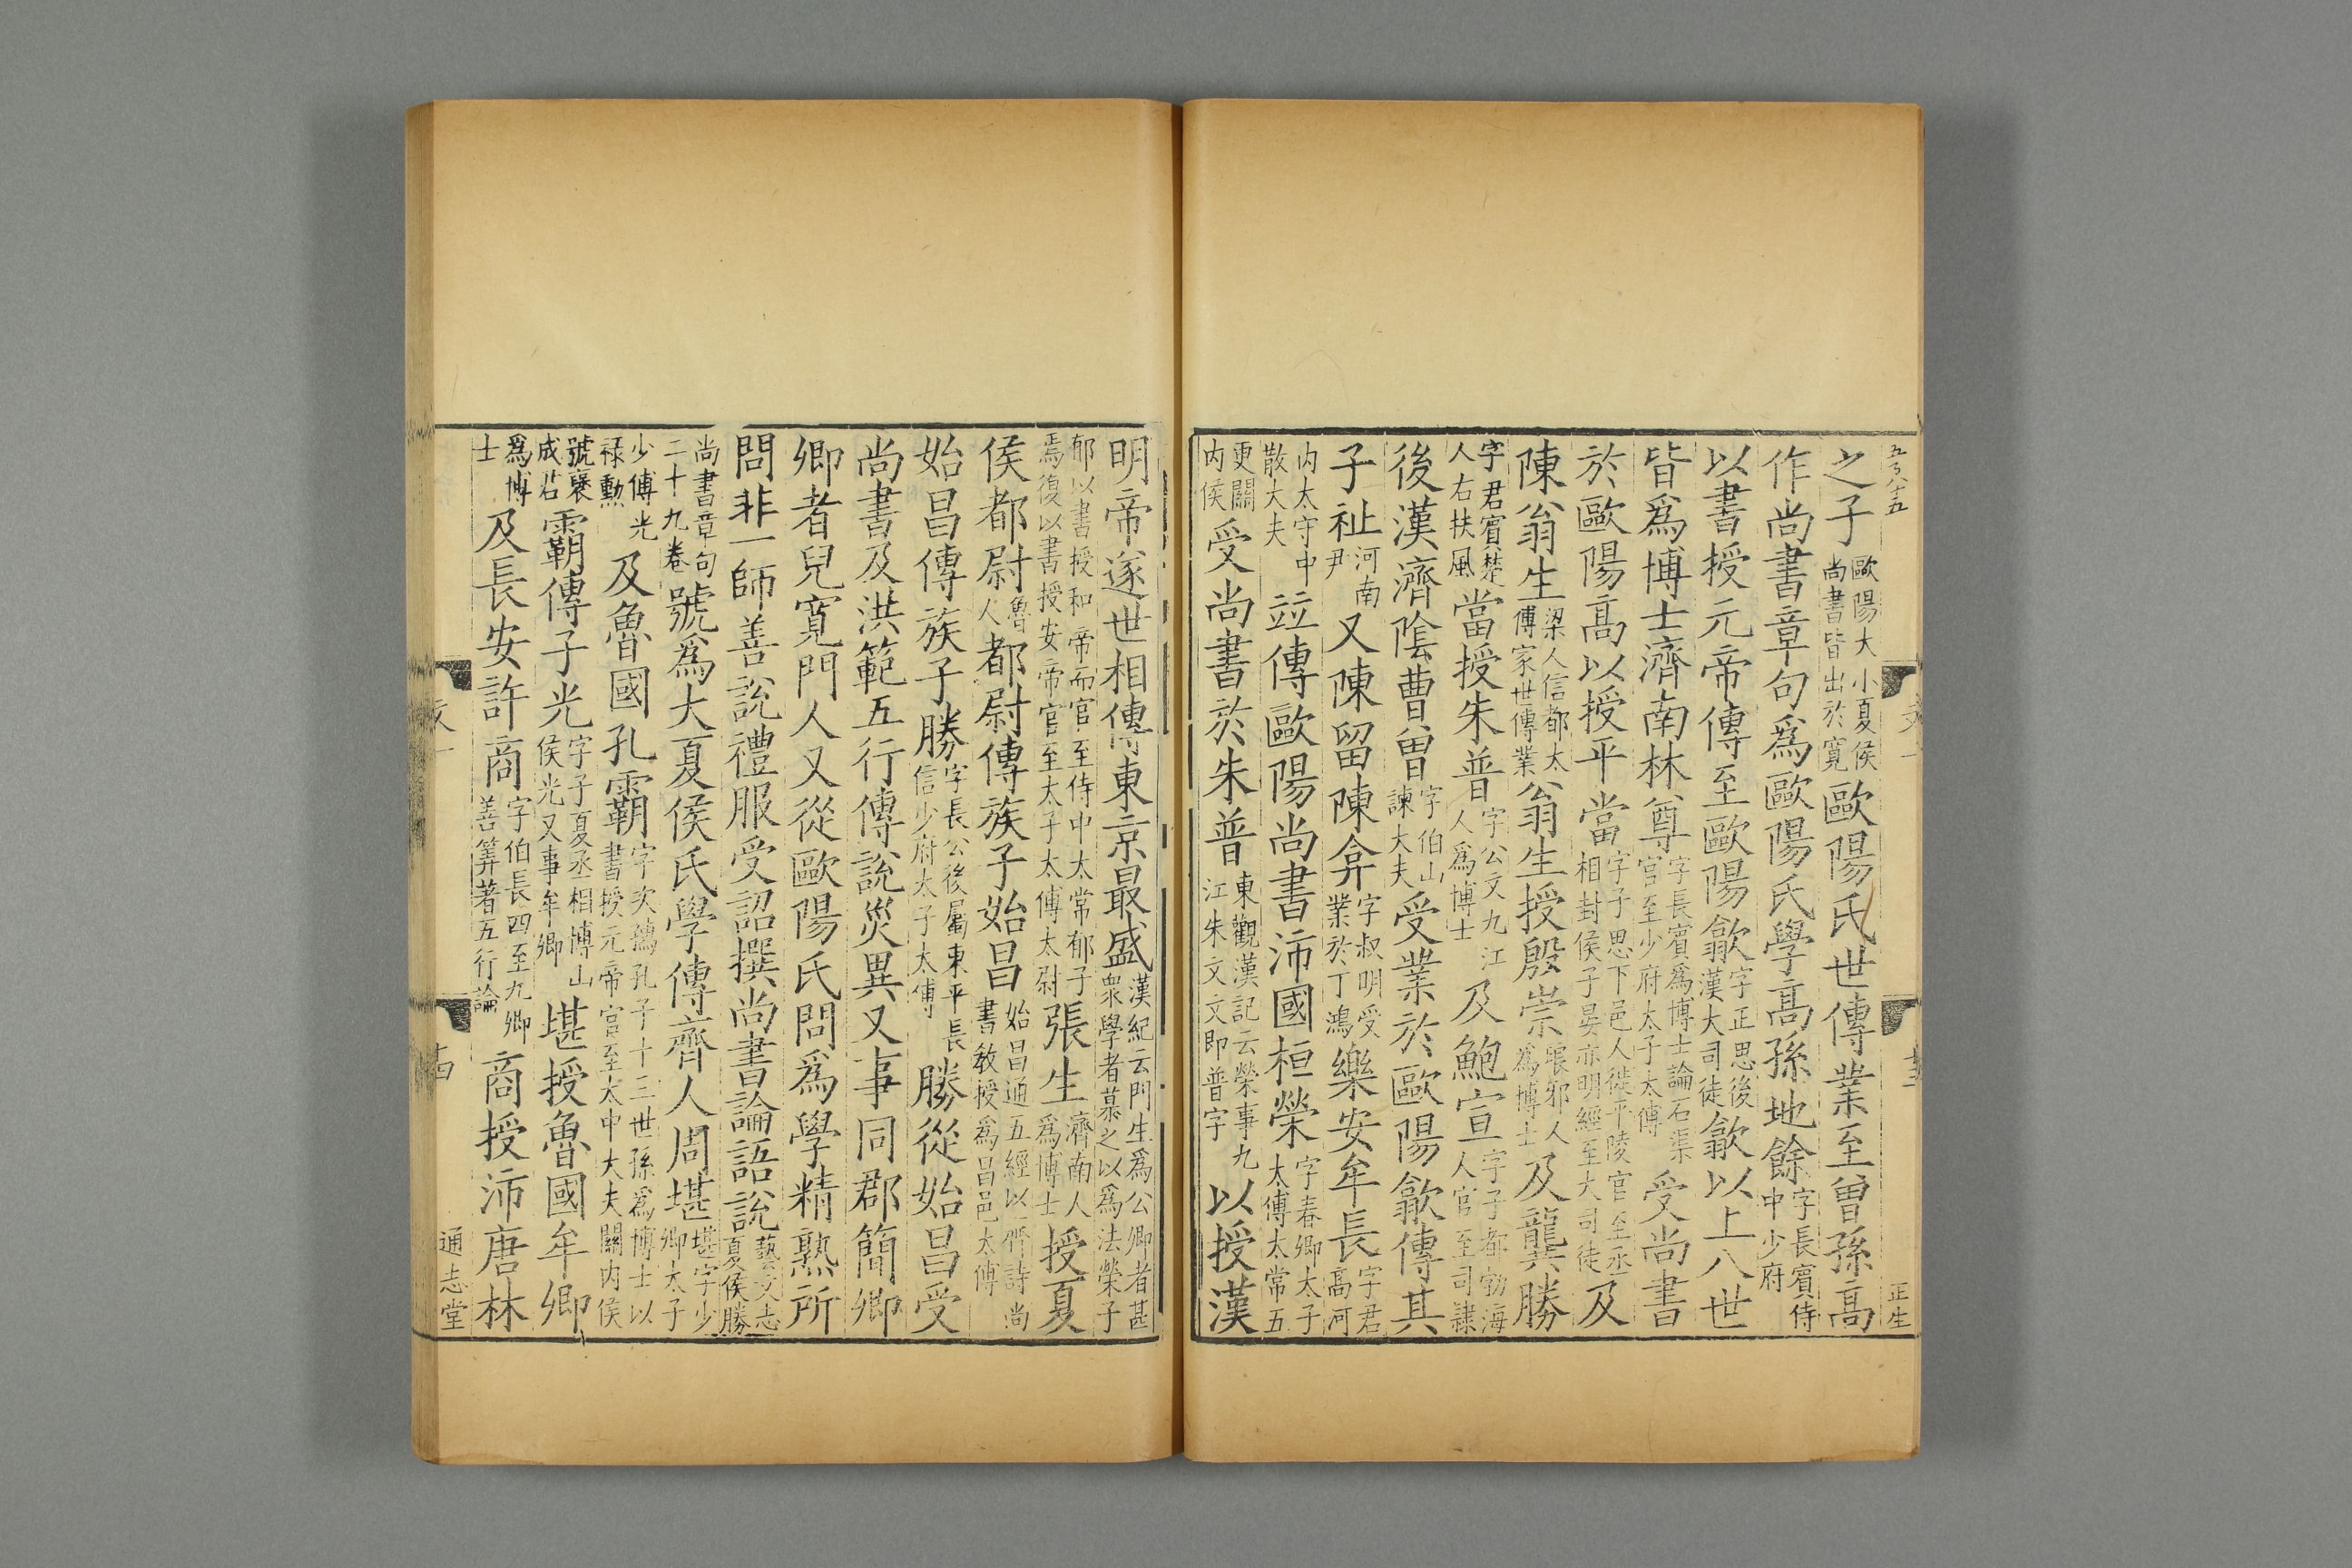 之子歐陽大小夏侯尚書皆出於寛歐陽氏世傳業至曾孫高
作尚書章句爲歐陽氏學高孫地餘字長賓侍中少府
以書授元帝傳至歐陽歙字正思後漢大司徒歙以上八世
皆爲博士濟南林尊字長賓爲博士論石渠官至少府太子太傅受尚書
於歐陽高以授平當字子思下邑人徙平陵官至丞相封侯子晏亦明經至大司徒及
陳翁生梁人信都太傅家世傳業翁生授殷崇琅邪人爲博士及龔勝
字君賓楚人右扶風當授朱普字公文九江人爲博士及鮑宣字子都勃海人官至司隷
後漢濟陰曹曾字伯山諫大夫受業於歐陽歙傳其
子祉河南尹又陳留陳弇字叔明受業於丁鴻樂安牟長字君高河
内太守中散大夫竝傳歐陽尚書沛國桓榮字春卿太子太傅太常五
更關内侯受尚書於朱普東觀漢記云榮事九江朱文文即普字以授漢
明帝遂世相傳東京最盛漢紀云門生爲公卿者甚衆學者慕之以爲法榮子
郁以書授和帝而官至侍中太常郁子焉復以書授安帝官至太子太傅太尉張生濟南人爲博士授夏
侯都尉魯人都尉傳族子始昌始昌通五經以齊詩尚書教授爲昌邑太傅
始昌傳族子勝字長公後屬東平長信少府太子太傅勝從始昌受
尚書及洪範五行傳說災異又事同郡簡卿
卿者兒寛門人又從歐陽氏問爲學精熟所
問非一師善說禮服受詔撰尚書論語說藝文志夏侯勝
尚書章句二十九卷號爲大夏侯氏學傳齊人周堪堪字少卿太子
少傅光禄勳及魯國孔霸字次孺孔子十三世孫爲博士以書授元帝官至太中大夫關内侯
號襃成君霸傳子光字子夏丞相博山侯光又事牟卿堪授魯國牟卿
爲博士及長安許商字伯長四至九卿善筭著五行論商授沛唐林
正生
通志堂